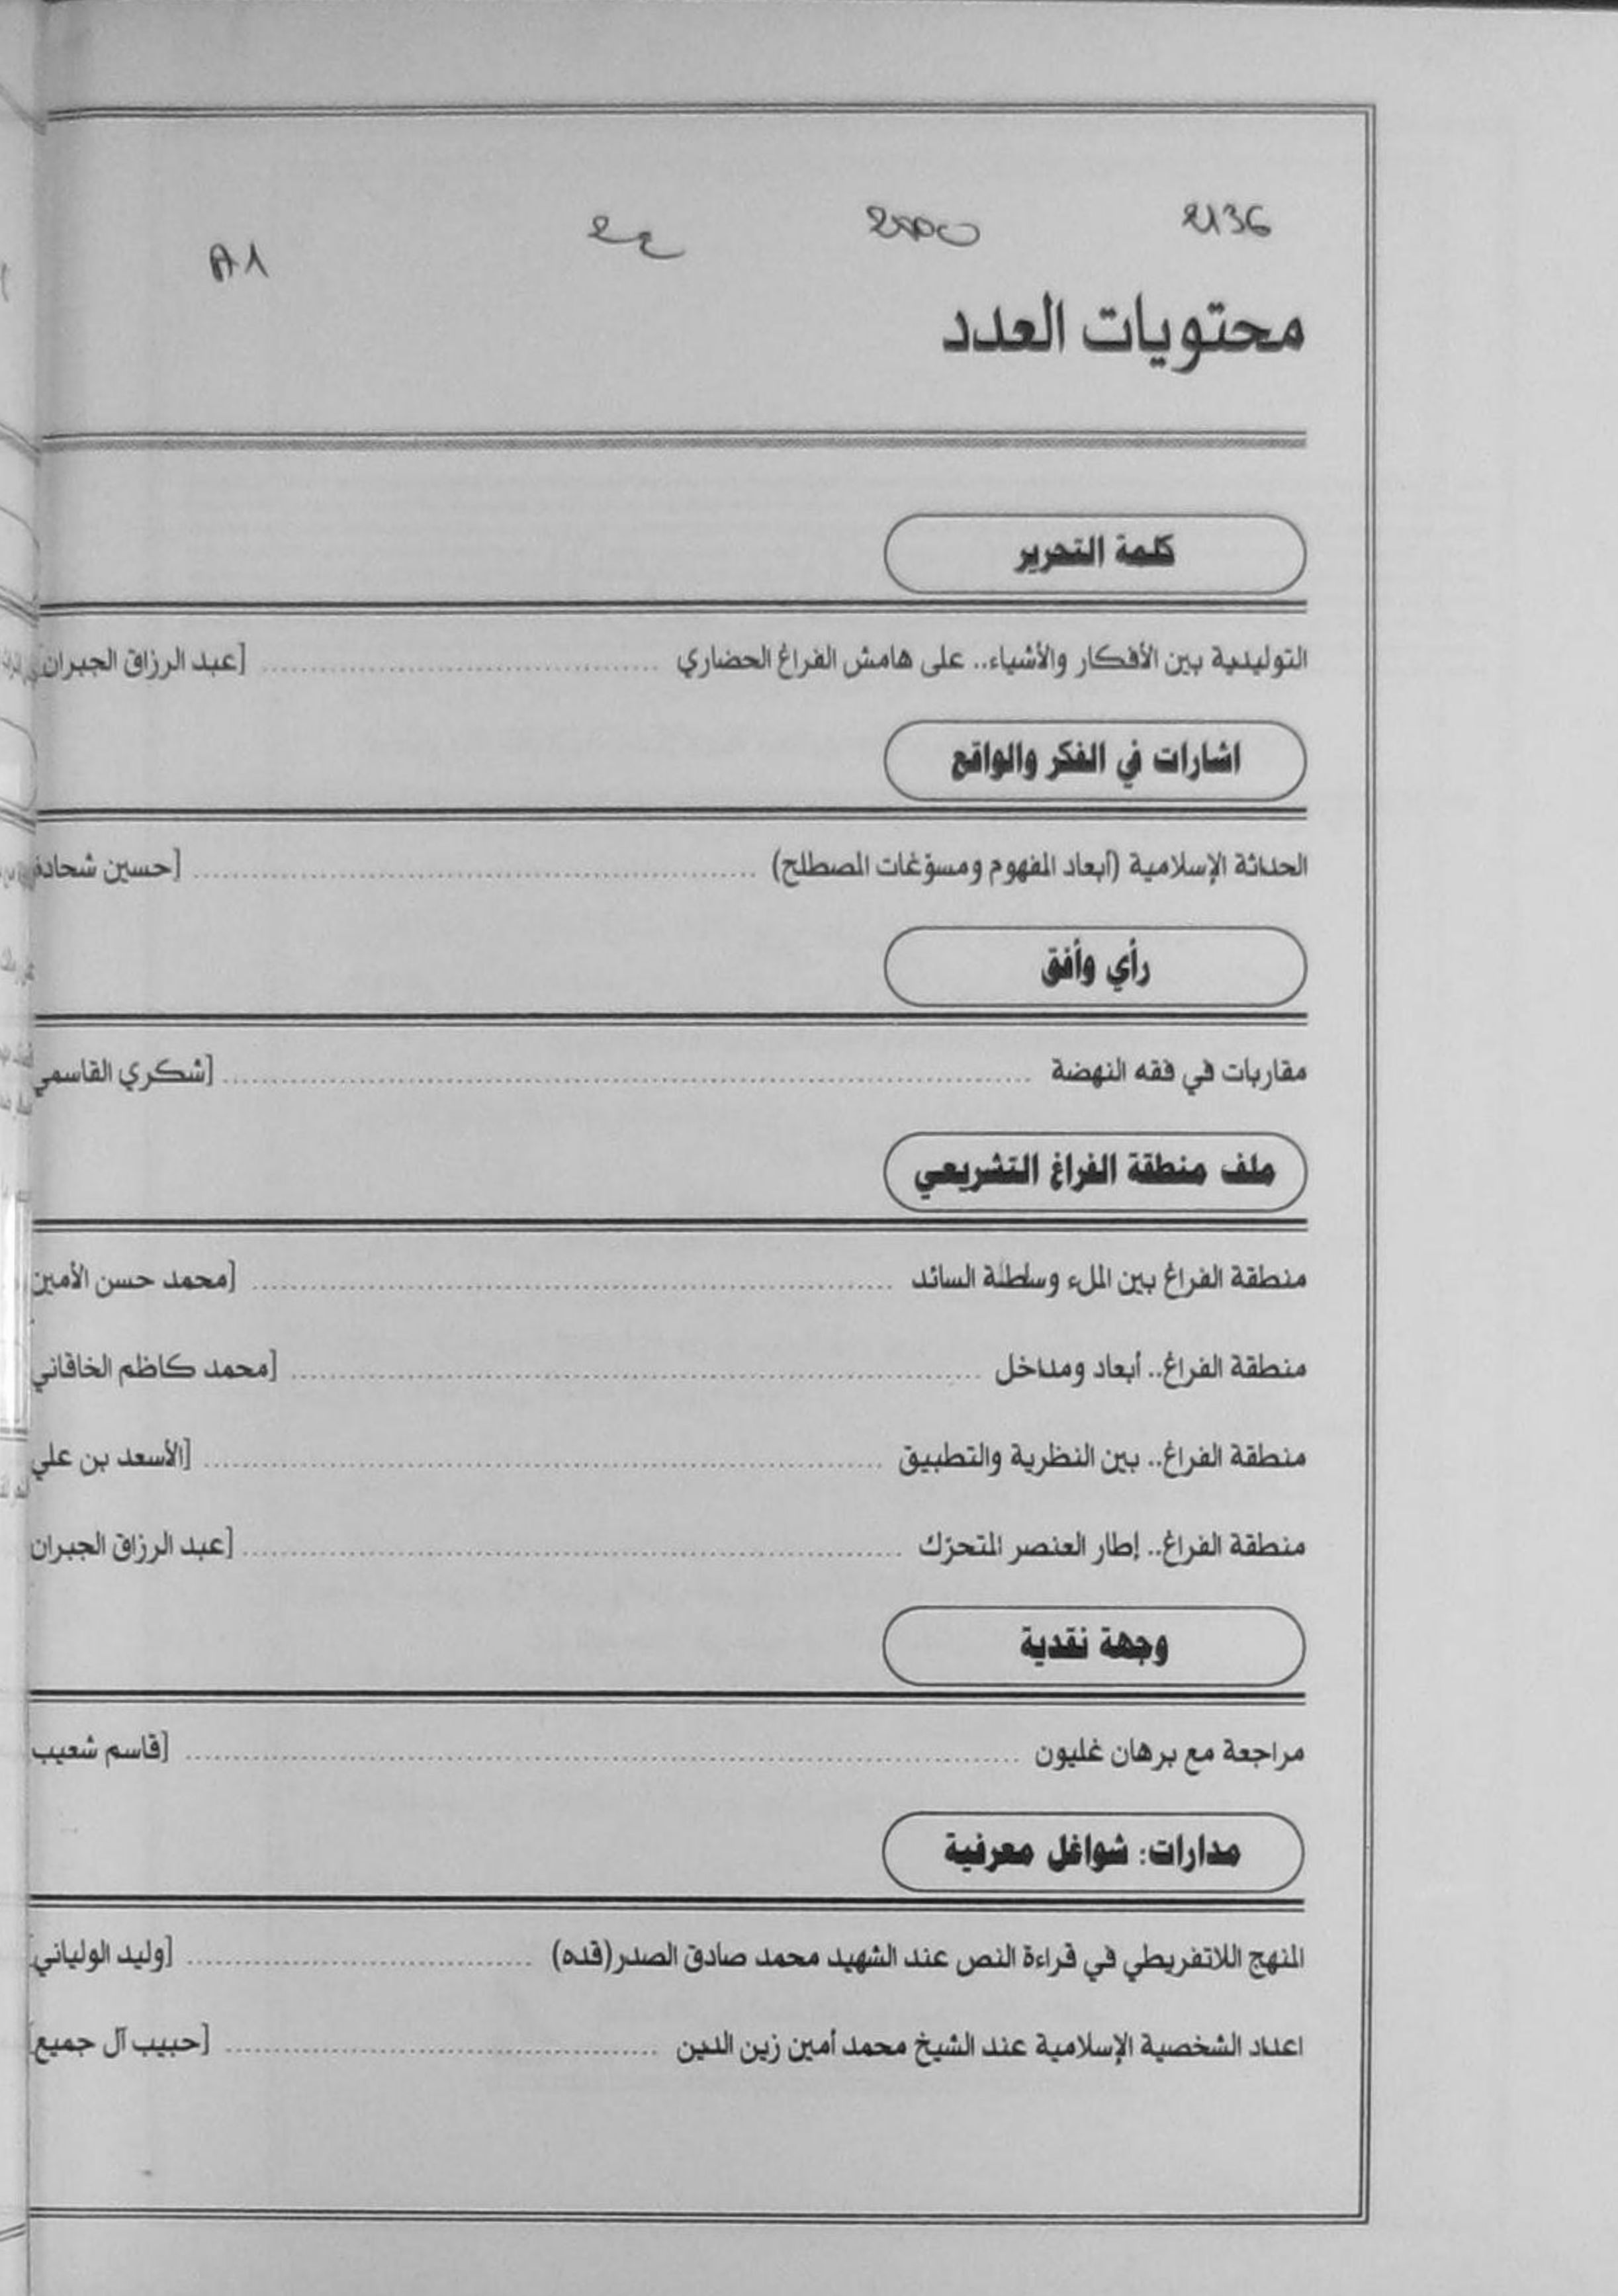 2136
A1
محتويات العدد
كلمة التحرير
التوليدية بين الأفكار والأشياء.. على هامش الفراغ الحضاري ........ [عبد الرزاق الجبران]
اشارات في الفكر والواقع
الحداثة الإسلامية (أبعاد المفهوم ومسوّغات المصطلح) ........ [حسين شحادة
رأي وأفق
مقاربات في فقه النهضة ........ [شكري القاسمي
ملف منطقة الفراغ التشريعي
منطقة الفراغ بين الملء وسلطلة السائد ........ [محمد حسن الأمين
منطقة الفراغ.. أبعاد ومداخل ........ [محمد كاظم الخاقاني
منطقة الفراغ.. بين النظرية والتطبيق ........ [الأسعد بن علي
منطقة الفراغ.. إطار العنصر المتحرّك ........ [عبد الرزاق الجبران
وجهة نقدية
مراجعة مع برهان غليون ........ [قاسم شعيب
مدارات: شواغل معرفية
المنهج اللاتفريطي في قراءة النص عند الشهيد محمد صادق الصدر(قده) ........ [وليد الولياني]
اعداد الشخصية الإسلامية عند الشيخ محمد أمين زين الدين ........ [حبيب آل جميع]